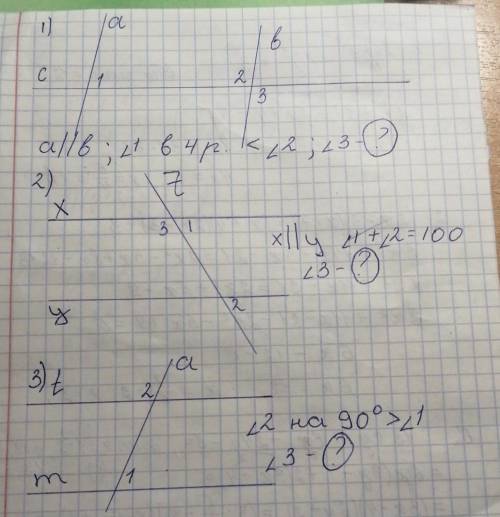 1) a в
c 1 2 3
a||в ; ∠1 в 4 р. < ∠2 ; ∠3 - ?
2) z
x 3 1
x||y ∠1+∠2=100
∠3 - ?
y 2
3) t 2 a
∠2 на 90° > ∠1
∠3 - ?
m 1